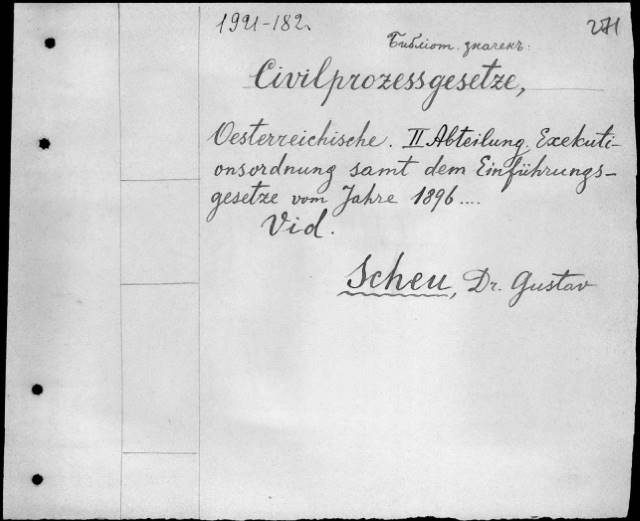 1921-182.
271
Библіот. значекъ.
Civilprozessgesetze,
Oesterreichische. II Abteilung. Exekuti-
onsordnung samt dem Einführungs-
gesetze vom Jahre 1896....
Vid.
Scheu, Dr. Gustav